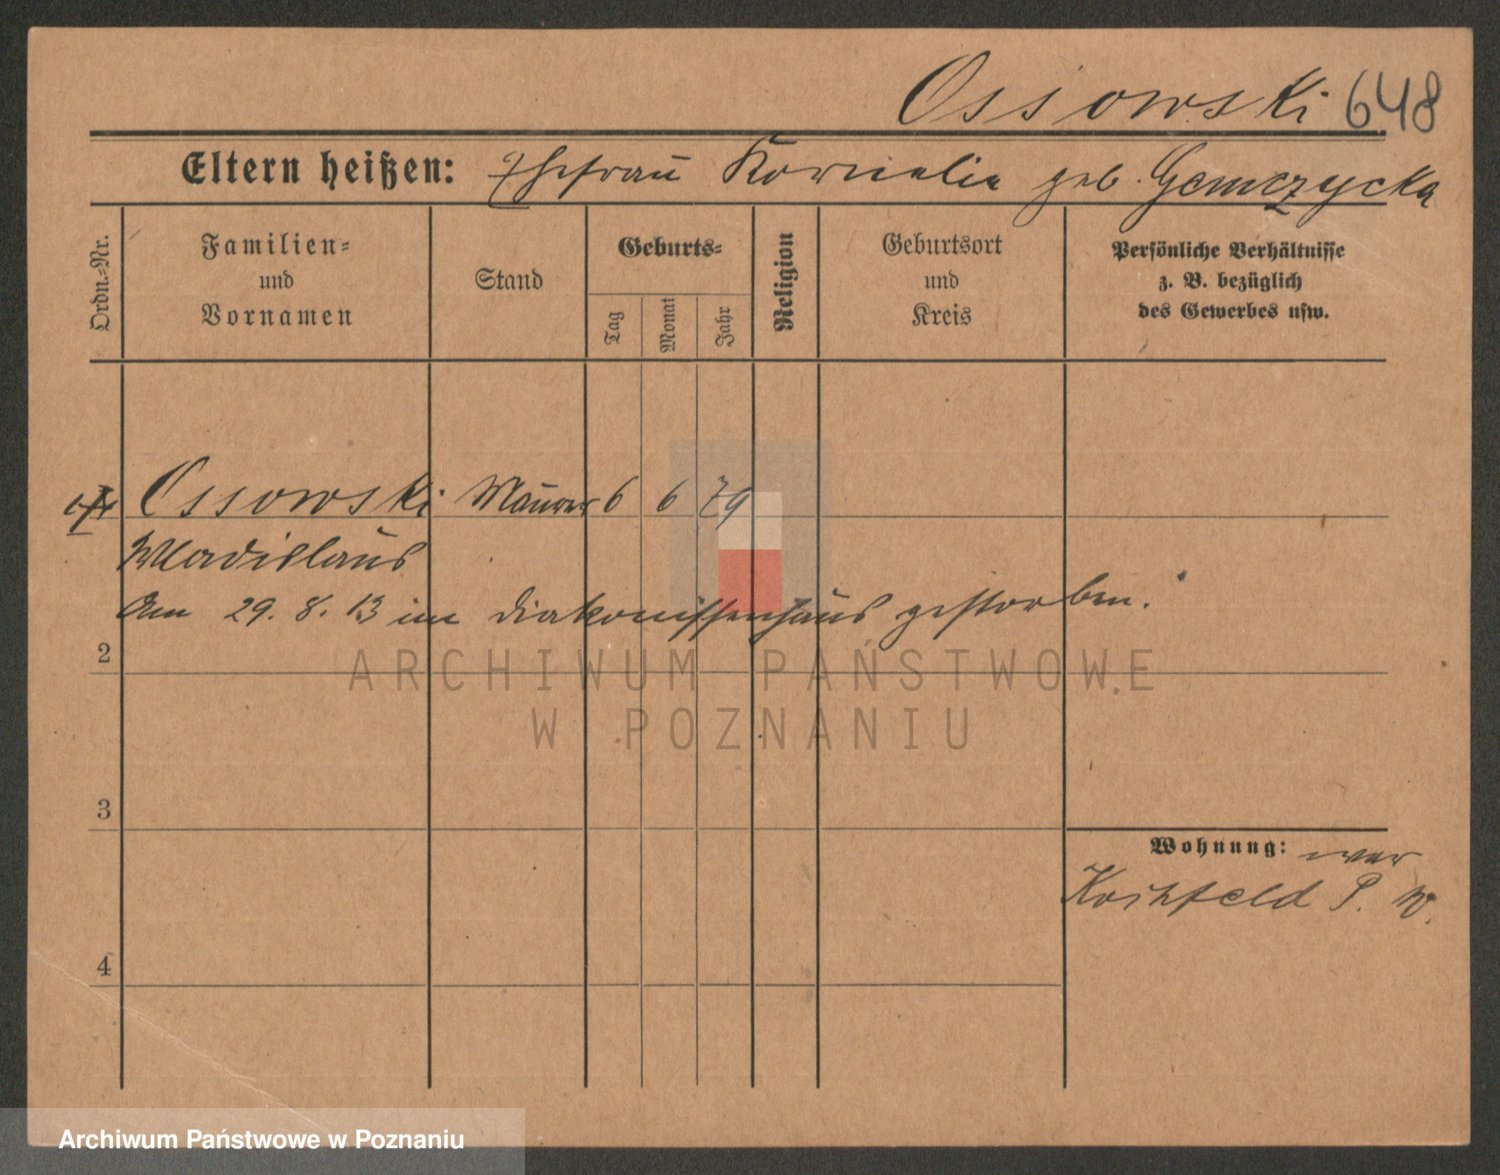 Ossowski 648
Eltern heißen: Ehefrau Kornelia geb. Gemczycka
Ordn.=Nr.
Familien=
und
Vornamen
Stand
Geburts=
Tag
Monat
Jahr
Religion
Geburtsort
und
Kreis
Persönliche Verhältnisse
z. B. bezüglich
des Gewerbes usw.
Ossowski Maurer 6 6 79
Wladislaus
Am 29. 8. 13 im Diakonissenhaus gestorben.
2
ARCHIWUM PAŃSTWOWE
W POZNANIU
3
Wohnung: war
P. W.
4
Archiwum Państwowe w Poznaniu